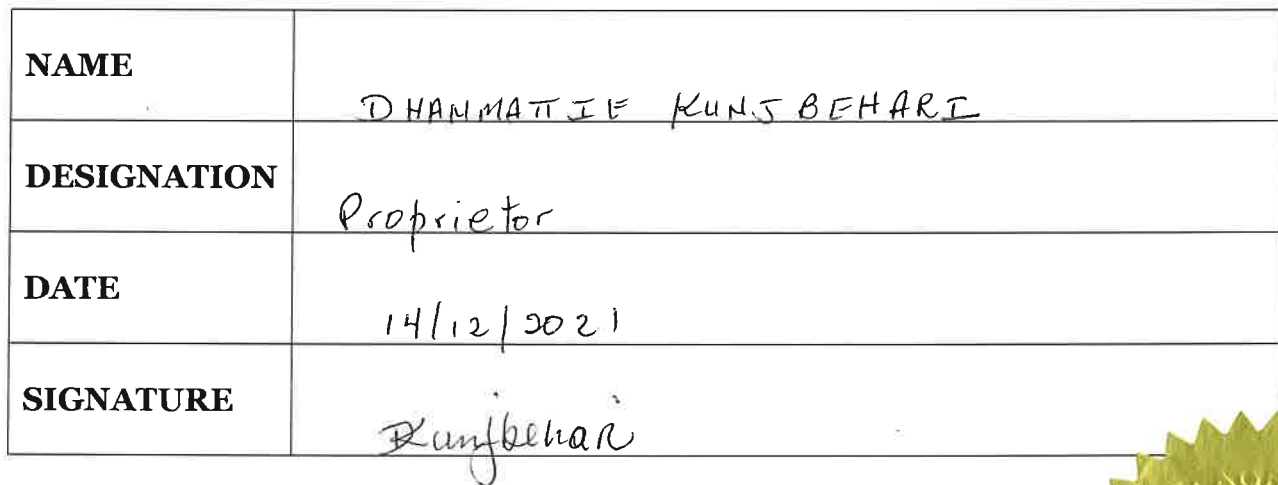 NAME
DHANMATTIE KUNJBEHARI
DESIGNATION
Proprietor
DATE
14/12/2021
SIGNATURE
DKunjbehari